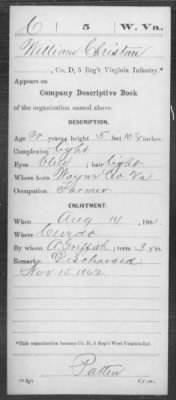 C | 5 | W. Va.
William Christan
, Co. D, 5 Reg't Virginia Infantry.*
Appears on
Company Descriptive Book
of the organization named above.
DESCRIPTION.
Age years; height 5 feet inches.
Complexion light
Eyes ; hair light
Where born Wayne Co Va
Occupation Farmer
ENLISTMENT.
When Aug 14, 1861.
Where Ceredo
By whom A. Griffith; term 3 y'rs.
Remarks: Discharged
Nov 15. 1862
*This organization became Co. D, 5 Reg't West Virginia Inf.
Patten
Copyist.